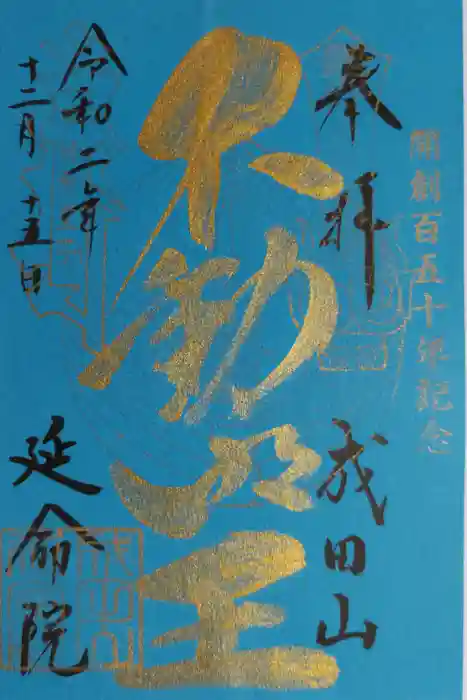 開創百五十年記念
奉拝
成田山
不動明王
令和二年
十二月十五日
延命院